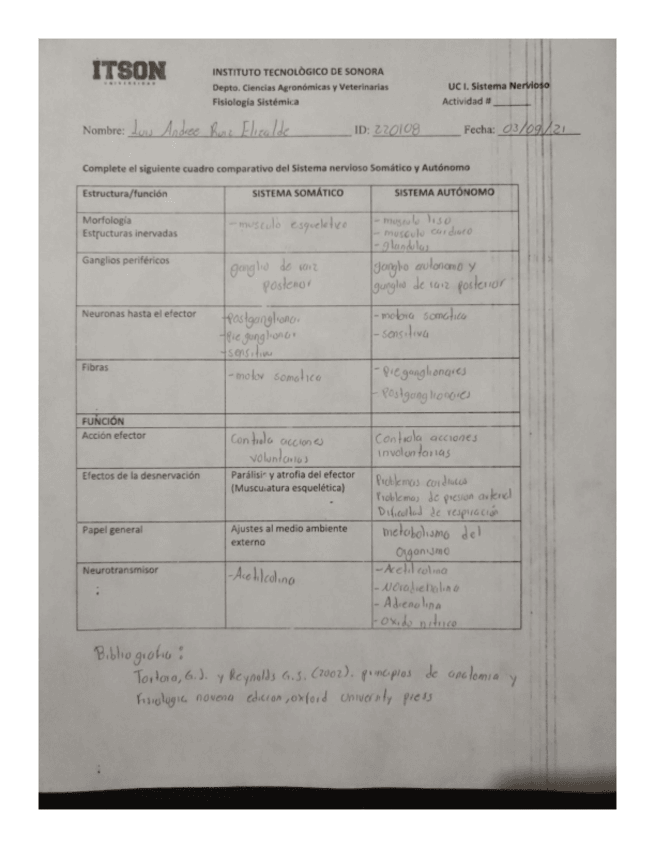 ITSON
UNIVERSIDAD
INSTITUTO TECNOLÒGICO DE SONORA
Depto. Ciencias Agronómicas y Veterinarias
UC I. Sistema Nervioso
Fisiología Sistémica
Actividad # ______
Nombre: Luis Andree Ruiz Elizalde ID: 220108 Fecha: 03/09/21
Complete el siguiente cuadro comparativo del Sistema nervioso Somático y Autónomo
Estructura/función SISTEMA SOMÁTICO SISTEMA AUTÓNOMO
Morfología
Estructuras inervadas
- musculo esqueletico
- musculo liso
- musculo cardiaco
- glandulas
Ganglios periféricos
ganglio de raiz
posterior
ganglio autonomo y
ganglio de raiz posterior
Neuronas hasta el efector
-Postganglionar
-Preganglionar
-sensitiva
- motora somatica
- sensitiva
Fibras
-motor somatico
- Preganglionares
- Postganglionares
FUNCIÓN
Acción efector
Controla acciones
voluntarias
Controla acciones
involuntarias
Efectos de la desnervación
Parálisis y atrofia del efector
(Muscuatura esquelética)
Problemas cardiacos
Problemas de presion arterial
Dificultad de respiración
Papel general
Ajustes al medio ambiente
externo
metabolismo del
organismo
Neurotransmisor
-Acetilcolina
-Acetilcolina
- Noradrenalina
- Adrenalina
-oxido nitrico
Bibliografia:
Tortora, G.J. y Reynolds G.S. (2002). principios de anatomia y
fisiologia novena edicion, oxford university press